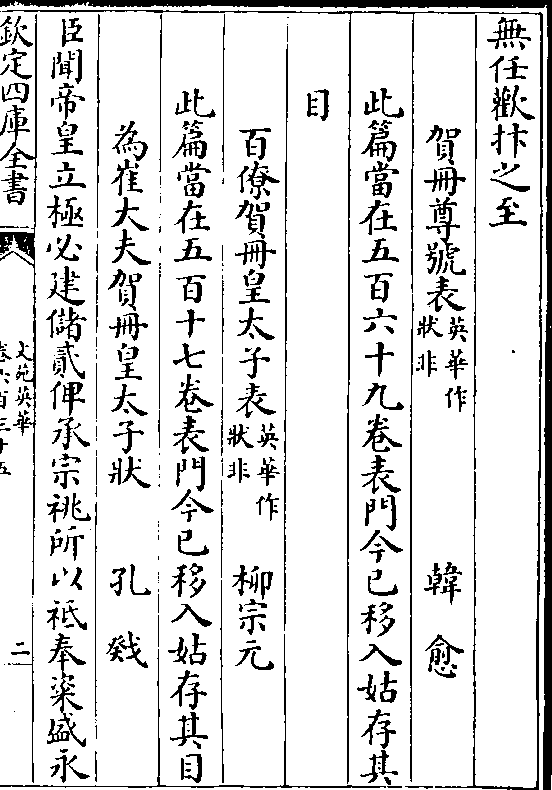 無任歡抃之至
賀冊尊號表英華作狀非 韓愈
此篇當在五百六十九卷表門今已移入姑存其
目
百僚賀冊皇太子表英華作狀非 柳宗元
此篇當在五百十七卷表門今已移入姑存其目
為崔大夫賀冊皇太子狀 孔戣
臣聞帝皇立極必建儲貳俾承宗祧所以祗奉粢盛永
欽定四庫全書
文苑英華
卷六百三十五
二